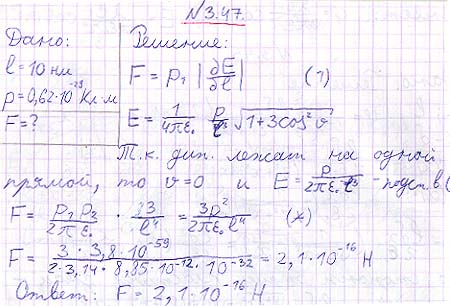 №3.47.
Дано:
l = 10 нм
p = 0,62·10⁻²⁹ Кл·м
F = ?
Решение:
F = p₁ |∂E/∂l| (1)
E = 1/4πε₀ p/l³ √1+3cos²υ
Т.к. дип. лежат на одной
прямой, то υ=0 и E = p/2πε₀l³ - подст. в (
F = p₁p₂/2πε₀ · 3/l⁴ = 3p²/2πε₀l⁴ (x)
F = 3·3,8·10⁻⁵⁹/2·3,14·8,85·10⁻¹²·10⁻³² = 2,1·10⁻¹⁶ Н
Ответ: F = 2,1·10⁻¹⁶ Н